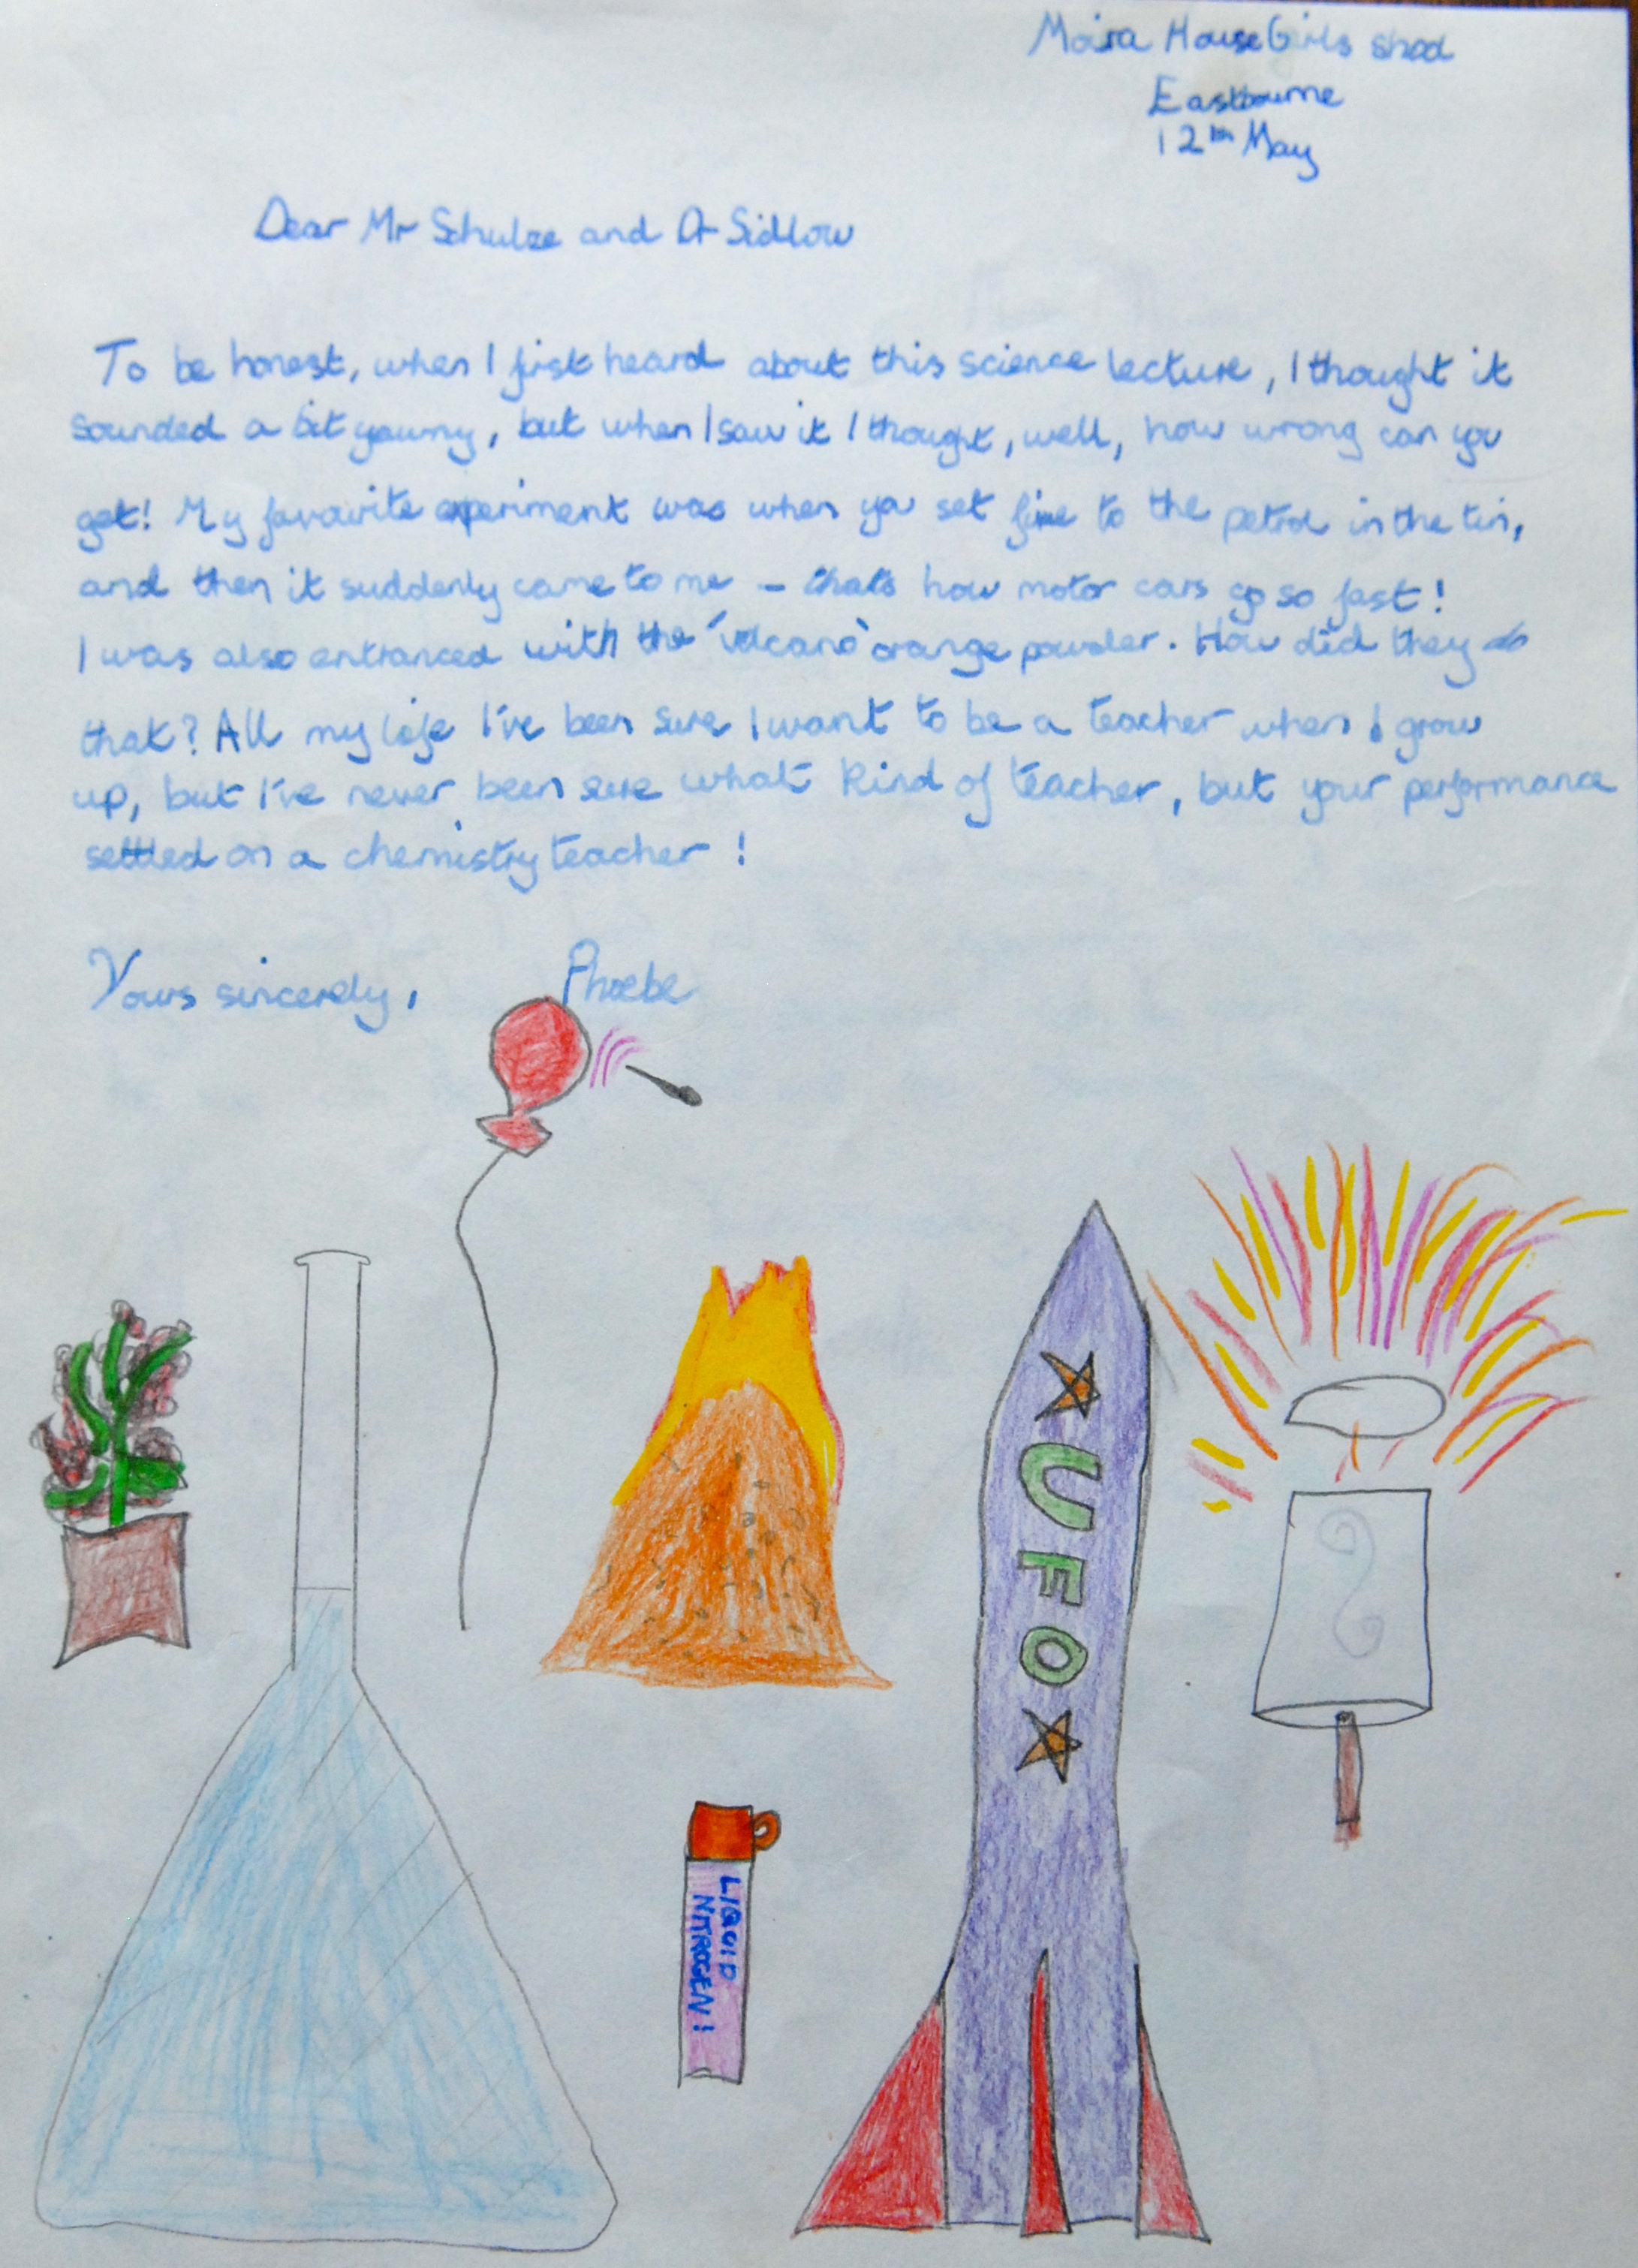 Moira House Girls shool
Eastbourne
12th May
Dear Mr Schulze and Dr Sidlow
To be honest, when I first heard about this science lecture, I thought it
sounded a bit yawny, but when I saw it I thought, well, how wrong can you
get! My favourite experiment was when you set fire to the petrol in the tin,
and then it suddenly came to me - thats how motor cars go so fast!
I was also entranced with the 'volcano' orange powder. How did they do
that? All my life I've been sure I want to be a teacher when I grow
up, but I've never been sure what kind of teacher, but your performance
settled on a chemistry teacher!
Yours sincerely, Phoebe
UFO
LIQUID
NITROGEN!